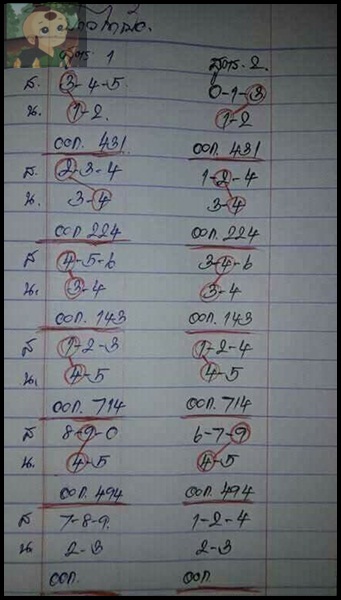 สูตร 1 สูตร 2.
ส. 3-4-5. 0-1-3
น. 1-2. 1-2
ออก. 431 ออก. 431
ส. 2-3-4 1-2-4
น. 3-4 3-4
ออก 224 ออก. 224
ส 4-5-6 3-4-6
น. 3-4 3-4
ออก. 143 ออก. 143
ส 1-2-3 1-2-4
น. 4-5 4-5
ออก. 714 ออก. 714
ส 8-9-0 6-7-9
น. 4-5 4-5
ออก. 494 ออก. 494
ส 7-8-9. 1-2-4
น. 2-3 2-3
ออก. ออก